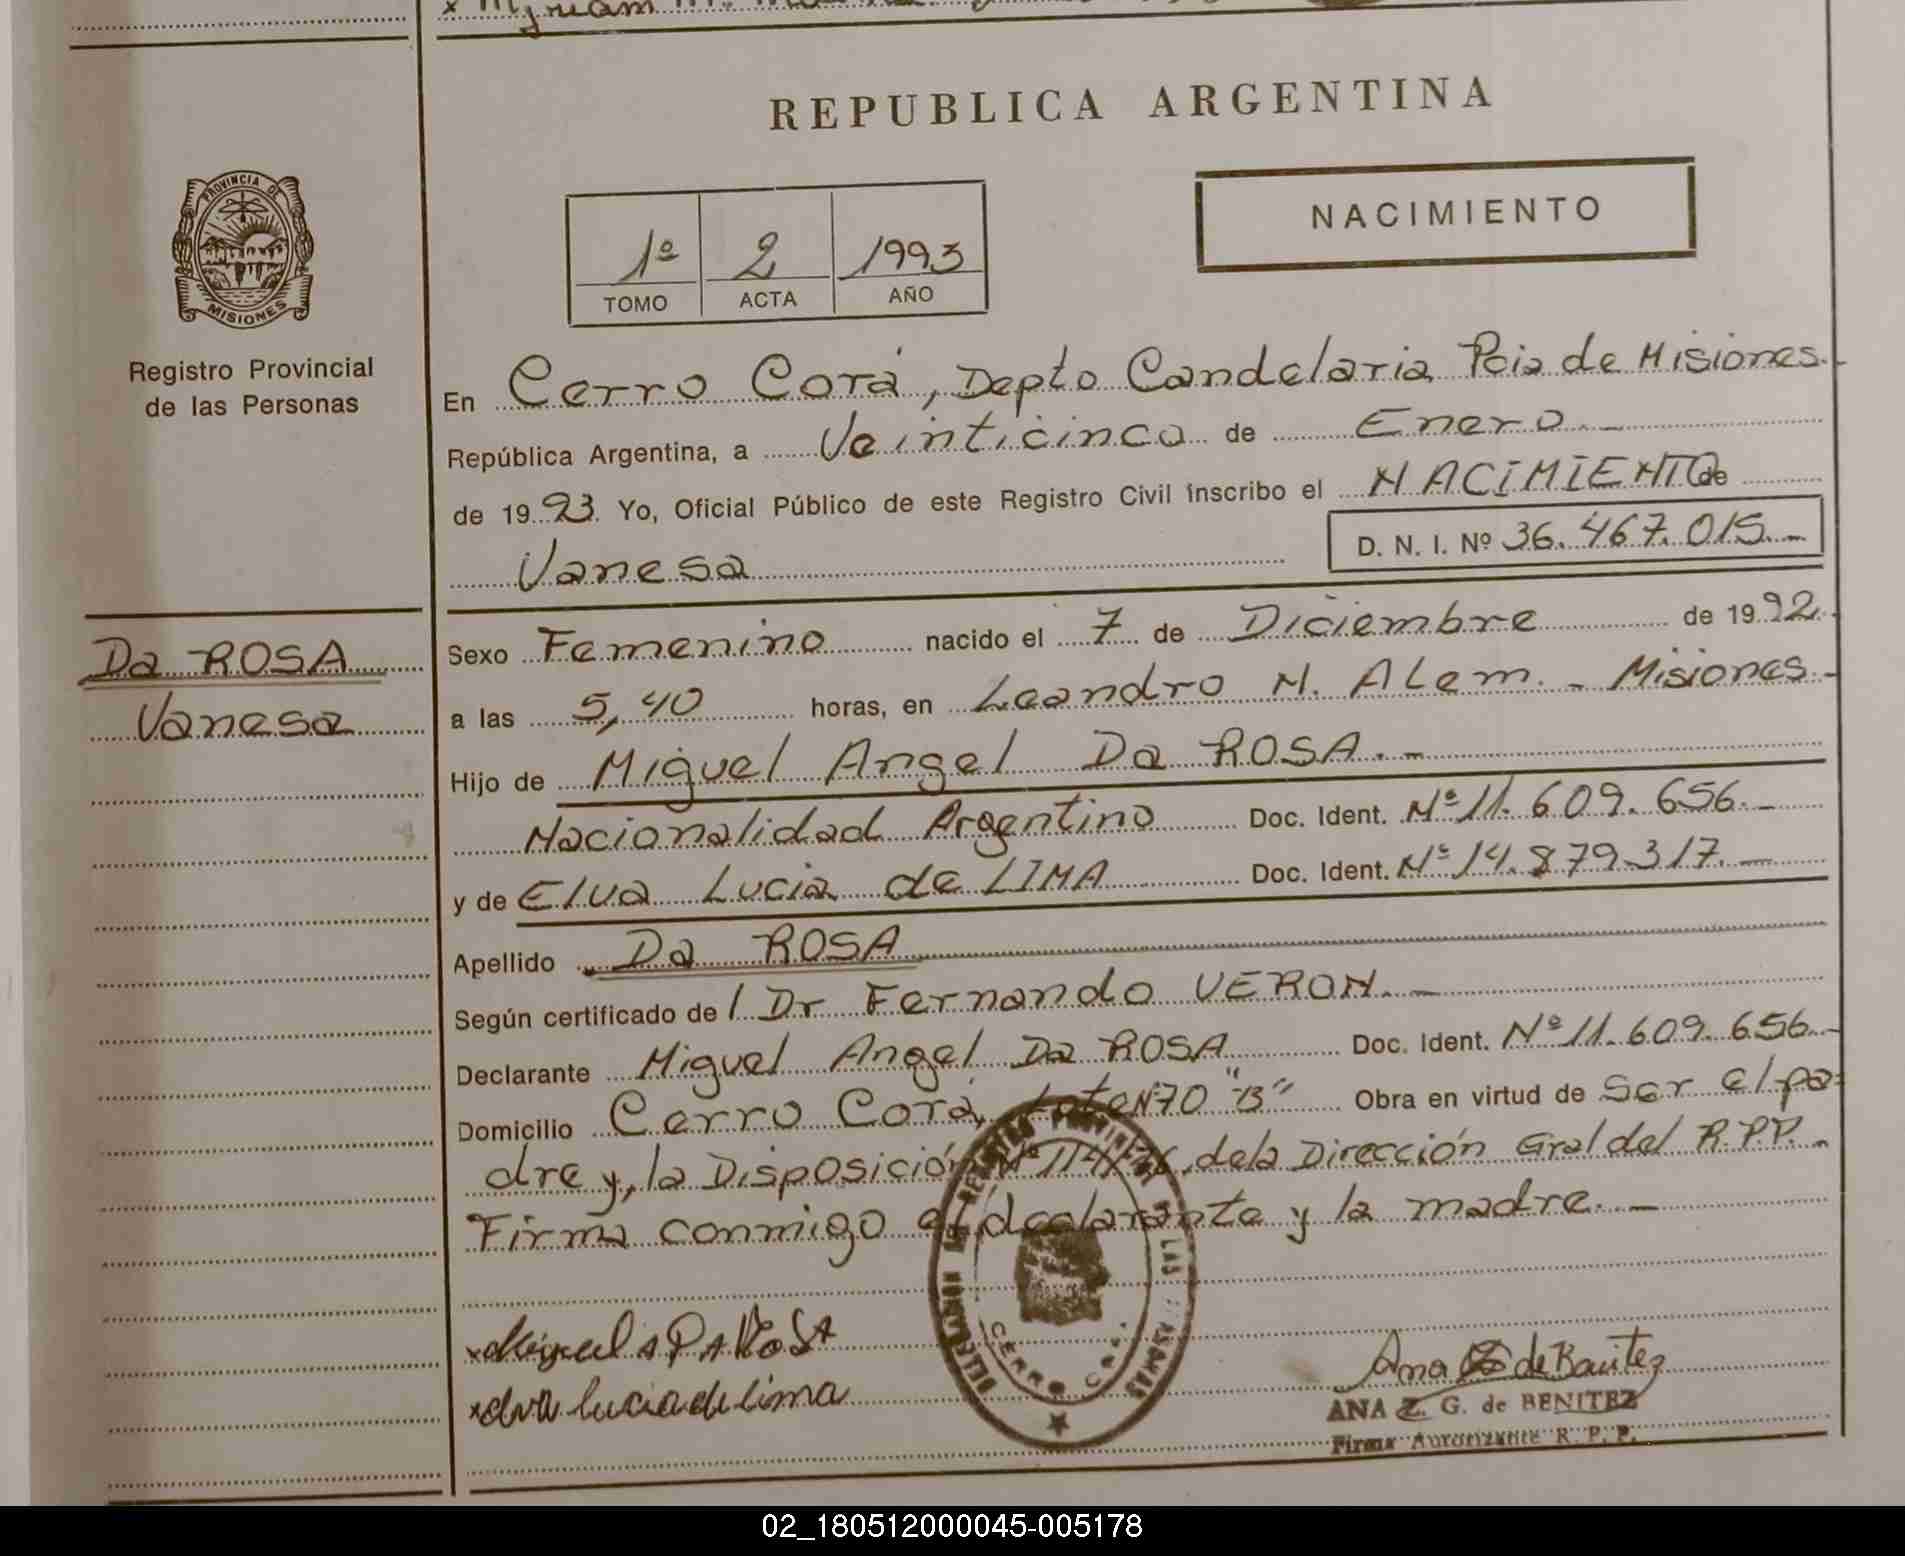 REPUBLICA ARGENTINA
PROVINCIA DE
MISIONES
Registro Provincial
de las Personas
NACIMIENTO
1º 2 1993
TOMO ACTA AÑO
En Cerro Corá, Depto Candelaria Pcia de Misiones.
República Argentina, a Veinticinco de Enero.-
de 1993. Yo, Oficial Público de este Registro Civil inscribo el NACIMIENTO de
Vanesa D. N. I. Nº 36.467.015.-
Da ROSA
Vanesa
Sexo Femenino nacido el 7 de Diciembre de 1992.
a las 5,40 horas, en Leandro N. ALem.- Misiones.-
Hijo de Miguel Angel Da ROSA.-
Nacionalidad Argentino Doc. Ident. Nº 11.609.656.-
y de Elva Lucia de LIMA Doc. Ident. Nº 14.879.317.-
Apellido Da ROSA
Según certificado de l Dr Fernando VERON.-
Declarante Miguel Angel Da ROSA Doc. Ident. Nº 11.609.656.-
Domicilio Cerro Corá, Lote Nº70 "B" Obra en virtud de Ser el pa-
dre y, la Disposición Nº de la Dirección Gral del R.P.P.-
Firma conmigo el declarante y la madre.-
DELEGACION REGISTRO PROVINCIAL DE LAS PERSONAS
CERRO CORA
Ana de Benitez
ANA Z. G. de BENITEZ
Firma Autorizante R. P. P.
02_180512000045-005178